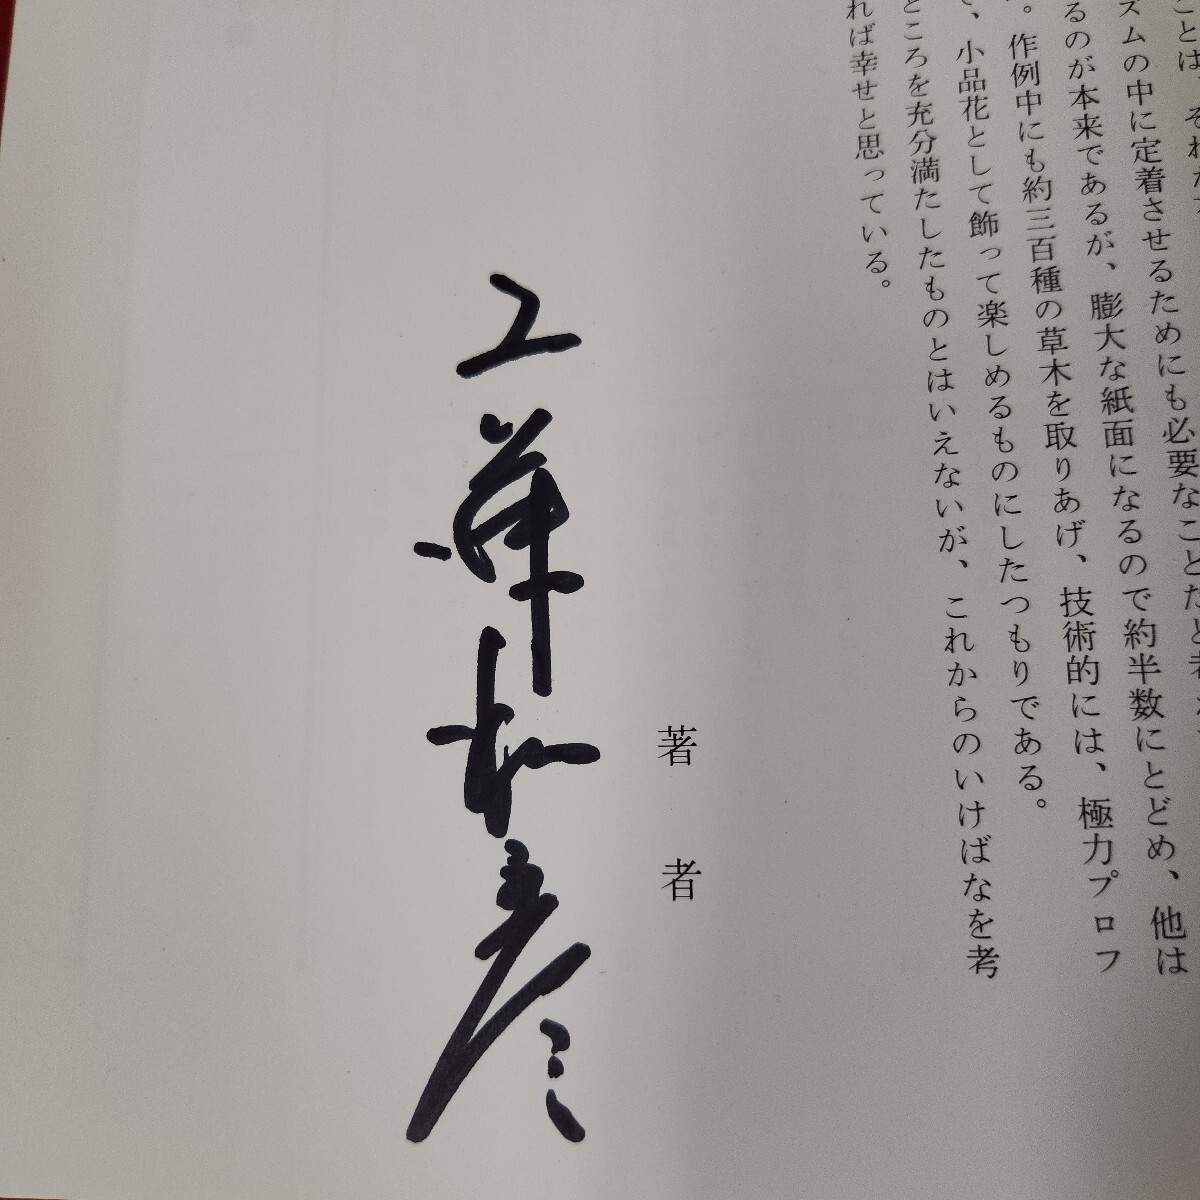 ことは、それだ
ズムの中に定着させるためにも必要なことだと考え、
るのが本来であるが、膨大な紙面になるので約半数にとどめ、他は
。作例中にも約三百種の草木を取りあげ、技術的には、極力プロフ
で、小品花として飾って楽しめるものにしたつもりである。
ところを充分満たしたものとはいえないが、これからのいけばなを考
れば幸せと思っている。
著者
工藤和彦